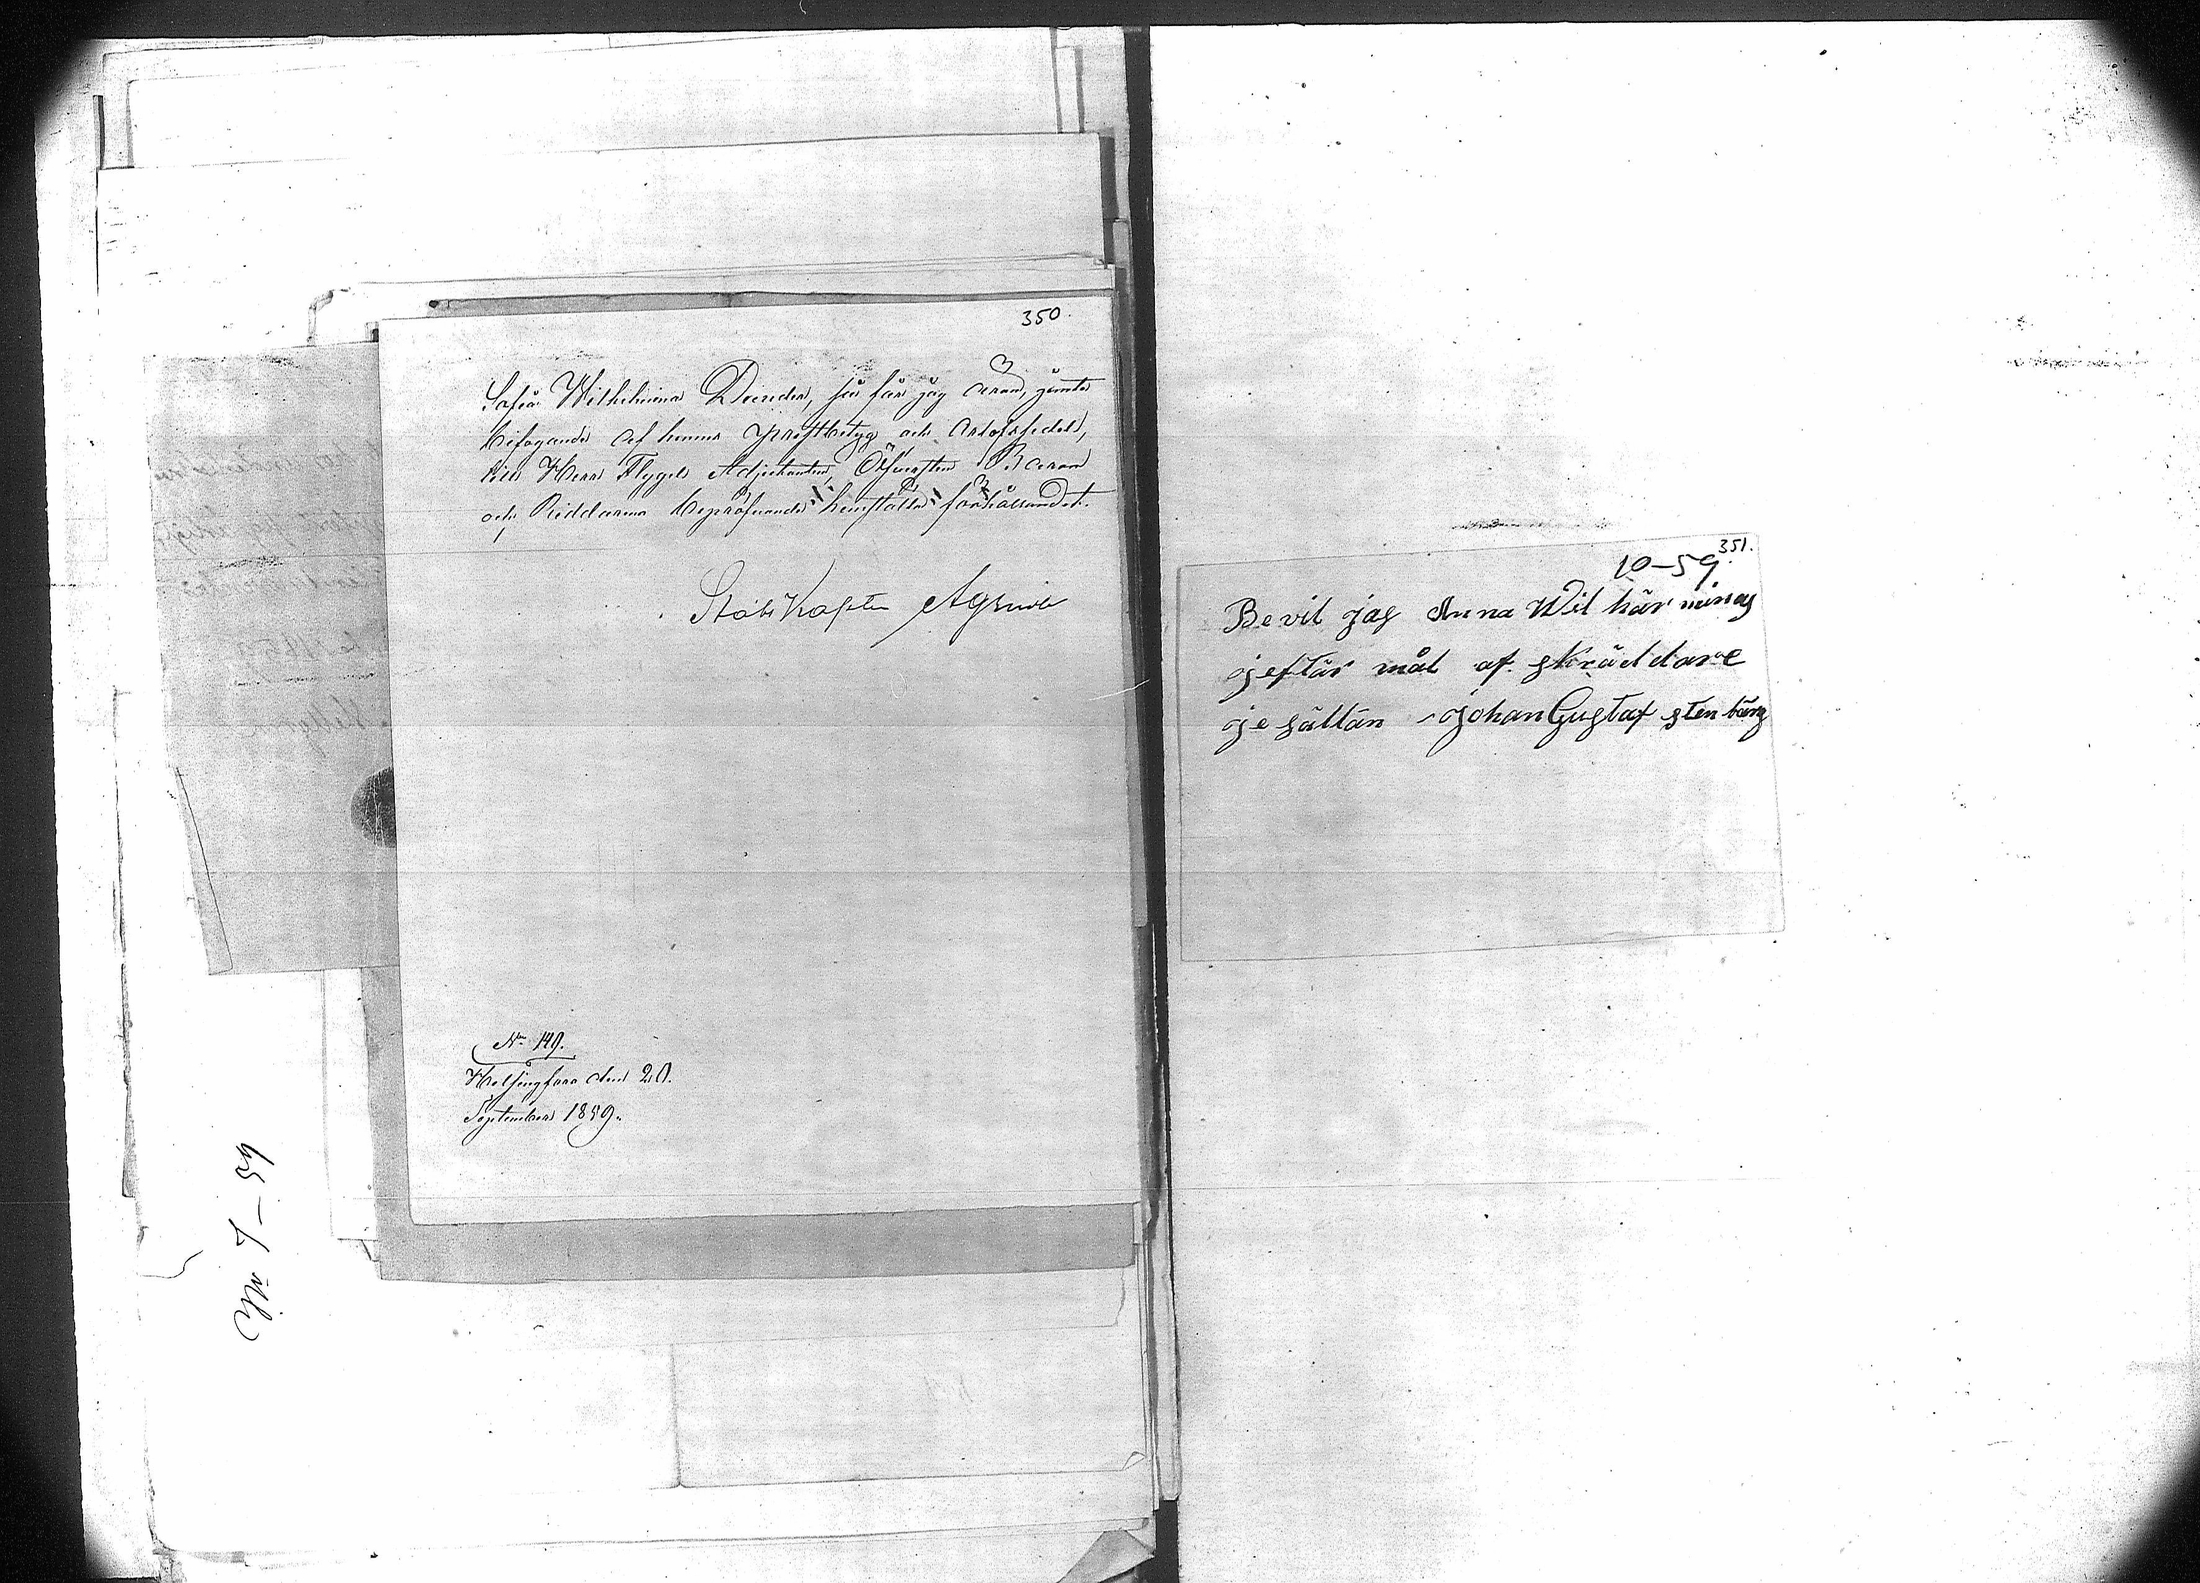 350.
Sofia Wilhelmina Deander, så får jag äran, jemte
bifogande af hennes prestbetyg och orlofssedel,
till Herr Flygel Adjutanten, Öfversten Baron
och Riddarens bepröfvande hemställa förhållandet.
Stabs Kapten
No 149.
Helsingfors den 20.
September 1859.
351.
10-59.
Bevil jag Anna Wil här minas
jeftär mål af skräddare
je sällän johan Gustaf stenbärg
7-59